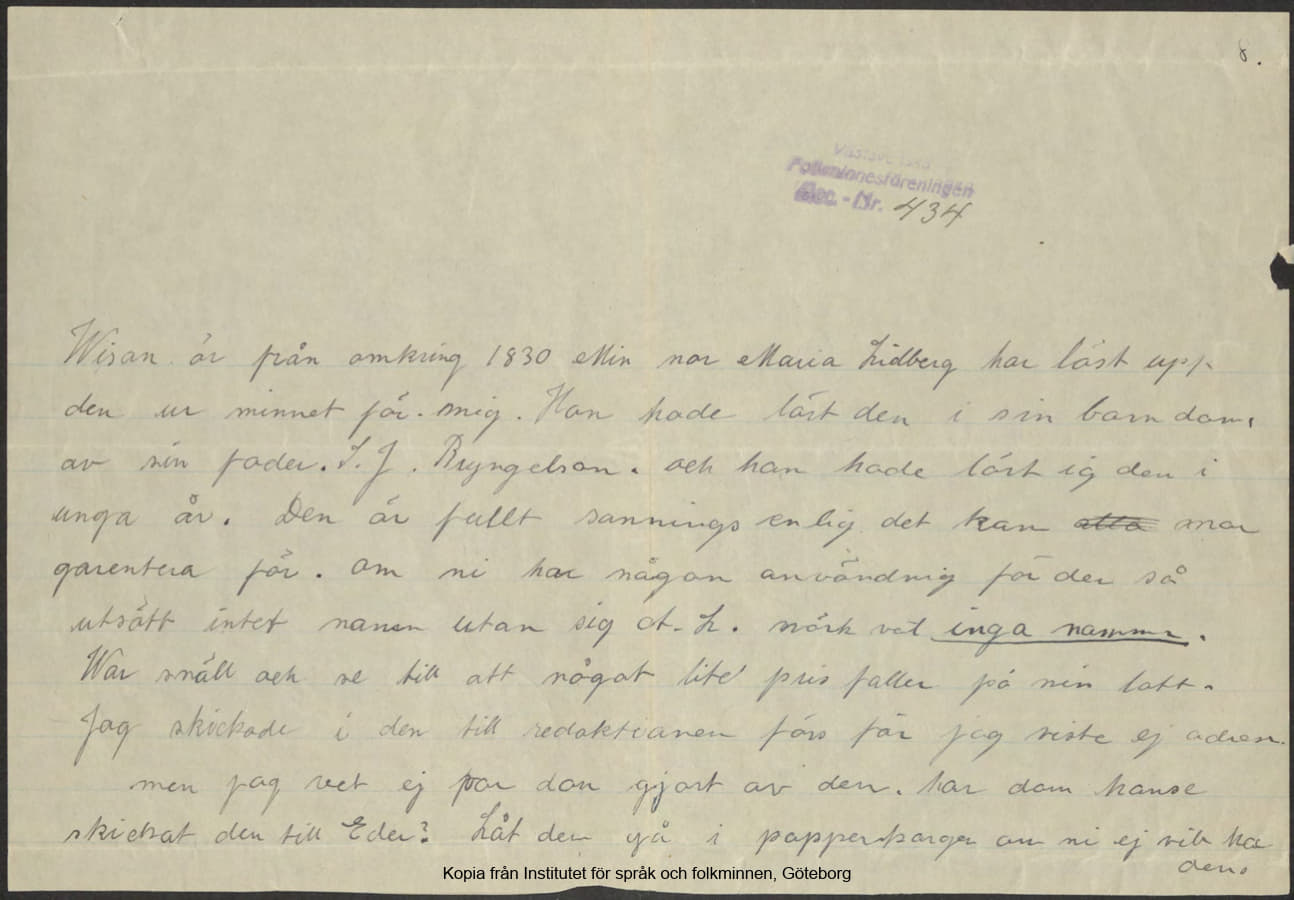 8.
Folkminnesföreningen
Acc. - Nr. 434
Wisan är från omkring 1830 Min mor Maria Lidberg har läst upp
den ur minnet för mig. Hon hade lärt den i sin barndom,
av sin fader. I. J. Bryngelson. och han hade lärt sig den i
unga år. Den är fullt sannings enlig det kan mor
garentera för. Om ni har någon användnig för den så
utsätt intet namen utan sig A. L. märk väl inga namn.
War snäll och se till att något lite' pris faller på min lott.
Jag skickade i den till redaktionen förs för jag viste ej adres.
men jag vet ej var dom gjort av den. har dom kanse
skickat den till Eder? Låt den gå i papperskorgen om ni ej vill ha
den.
Kopia från Institutet för språk och folkminnen, Göteborg